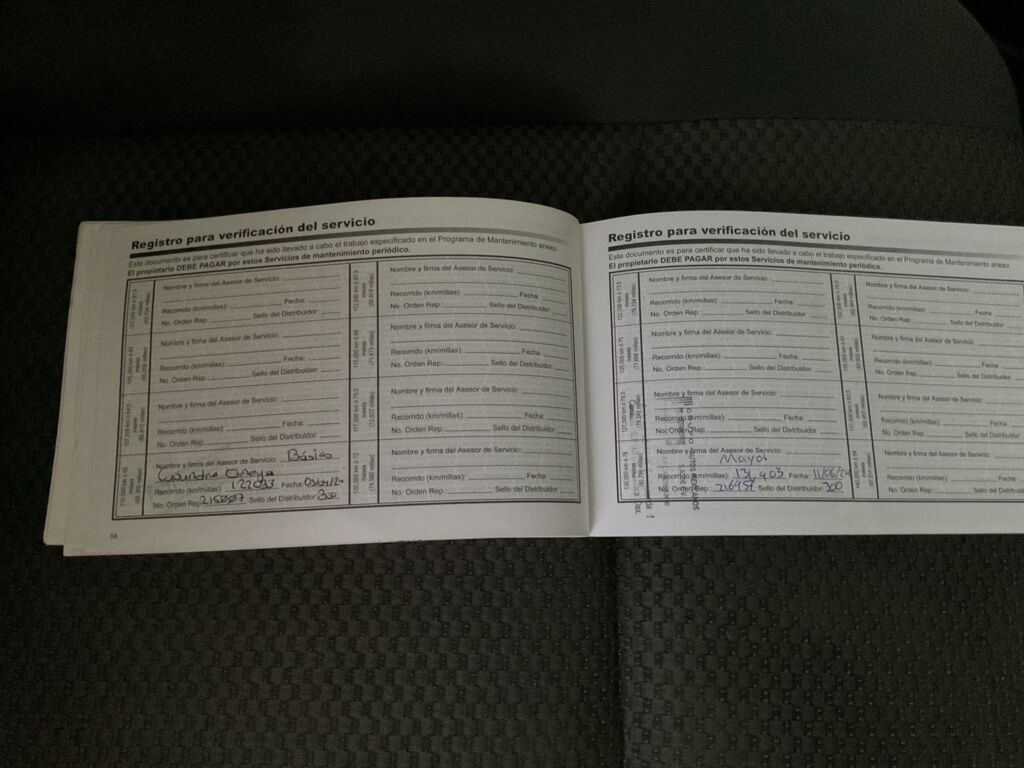 Registro para verificación del servicio
Este documento es para certificar que ha sido llevado a cabo el trabajo especificado en el Programa de Mantenimiento anexo.
El propietario DEBE PAGAR por estos Servicios de mantenimiento periódico.
Nombre y firma del Asesor de Servicio:
Recorrido (km/millas): Fecha:
No. Orden Rep.: Sello del Distribuidor:
Nombre y firma del Asesor de Servicio:
Recorrido (km/millas): Fecha:
No. Orden Rep.: Sello del Distribuidor:
Nombre y firma del Asesor de Servicio:
Recorrido (km/millas): Fecha:
No. Orden Rep.: Sello del Distribuidor:
Nombre y firma del Asesor de Servicio: Básico
Recorrido (km/millas): Fecha
No. Orden Rep.: 215007 Sello del Distribuidor: 300
Nombre y firma del Asesor de Servicio:
Recorrido (km/millas): Fecha:
No. Orden Rep.: Sello del Distribuidor:
Nombre y firma del Asesor de Servicio:
Recorrido (km/millas): Fecha:
No. Orden Rep.: Sello del Distribuidor:
Nombre y firma del Asesor de Servicio:
Recorrido (km/millas): Fecha:
No. Orden Rep.: Sello del Distribuidor:
Nombre y firma del Asesor de Servicio:
Recorrido (km/millas): Fecha:
No. Orden Rep.: Sello del Distribuidor:
58
Registro para verificación del servicio
Este documento es para certificar que ha sido llevado a cabo el trabajo especificado en el Programa de Mantenimiento anexo.
El propietario DEBE PAGAR por estos Servicios de mantenimiento periódico.
Nombre y firma del Asesor de Servicio:
Recorrido (km/millas): Fecha:
No. Orden Rep.: Sello del Distribuidor:
Nombre y firma del Asesor de Servicio:
Recorrido (km/millas): Fecha:
No. Orden Rep.: Sello del Distribuidor:
Nombre y firma del Asesor de Servicio:
Recorrido (km/millas): Fecha:
No. Orden Rep.: Sello del Distribuidor:
Nombre y firma del Asesor de Servicio:
Mayor
Recorrido (km/millas): 131,903 Fecha: 11/06/24
No. Orden Rep.: 216457 Sello del Distribuidor: 300
Nombre y firma del Asesor de Servicio:
Recorrido (km/millas): Fecha:
No. Orden Rep.: Sello del Distribuidor:
Nombre y firma del Asesor de Servicio:
Recorrido (km/millas): Fecha:
No. Orden Rep.: Sello del Distribuidor:
Nombre y firma del Asesor de Servicio:
Recorrido (km/millas): Fecha:
No. Orden Rep.: Sello del Distribuidor:
Nombre y firma del Asesor de Servicio:
Recorrido (km/millas): Fecha:
No. Orden Rep.: Sello del Distribuidor: